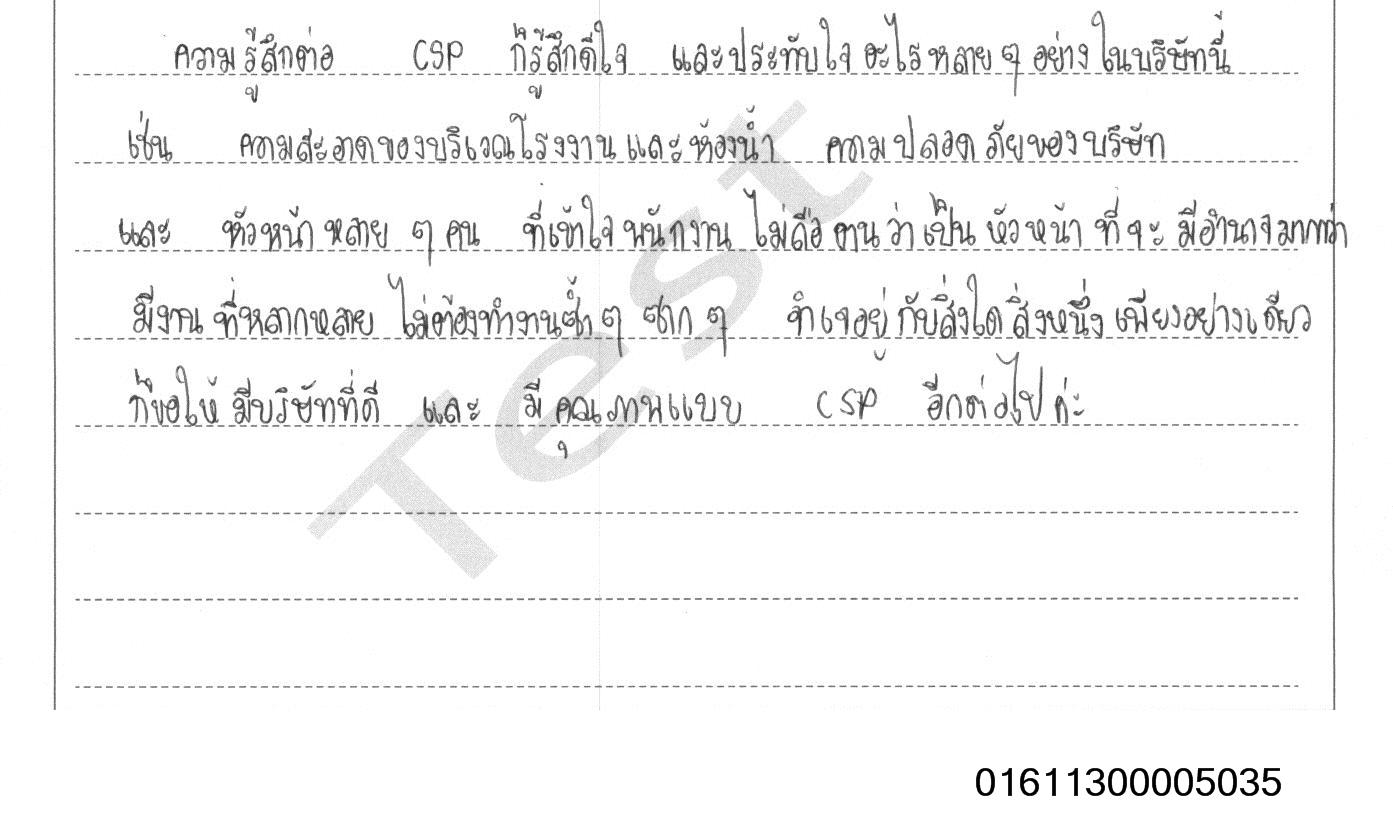 ความรู้สึกต่อ CSP ก็รู้สึกดีใจ และประทับใจอะไรหลาย ๆ อย่าง ในบริษัทนี้
เช่น ความสะอาดของบริเวณโรงงานและห้องน้ำ ความปลอดภัยของบริษัท
และ หัวหน้าหลาย ๆ คน ที่เข้าใจพนักงาน ไม่ถือตนว่าเป็นหัวหน้า ที่จะ มีอำนาจมากกว่า
มีงานที่หลากหลาย ไม่ต้องทำงานซ้ำ ๆ ซาก ๆ จำเจอยู่กับสิ่งใดสิ่งหนึ่งเพียงอย่างเดียว
ก็ขอให้มีบริษัทที่ดี และ มีคุณภาพแบบ CSP อีกต่อไปค่ะ
Test
01611300005035